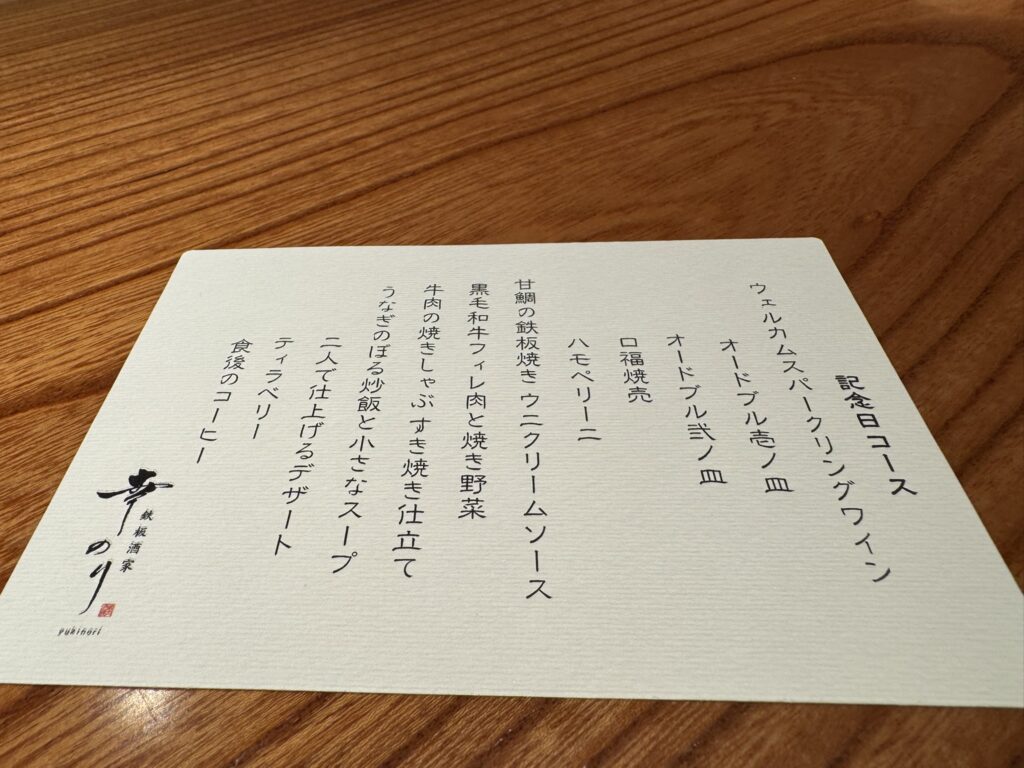 記念日コース
ウェルカムスパークリングワイン
オードブル壱ノ皿
オードブル弐ノ皿
口福焼売
ハモペリーニ
甘鯛の鉄板焼き ウニクリームソース
黒毛和牛フィレ肉と焼き野菜
牛肉の焼きしゃぶ すき焼き仕立て
うなぎのぼる炒飯と小さなスープ
二人で仕上げるデザート
ティラベリー
食後のコーヒー
鉄板酒家
幸のり
yukinori